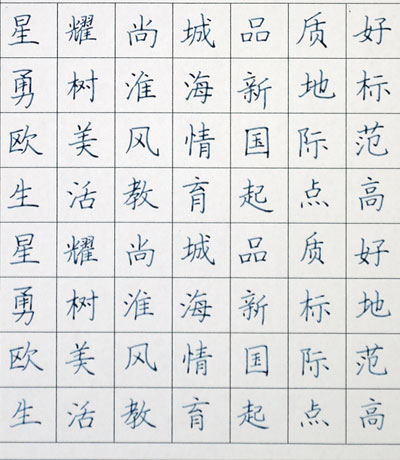 星耀尚城品质好
勇树淮海新地标
欧美风情国际范
生活教育起点高
星耀尚城品质好
勇树淮海新标地
欧美风情国际范
生活教育起点高